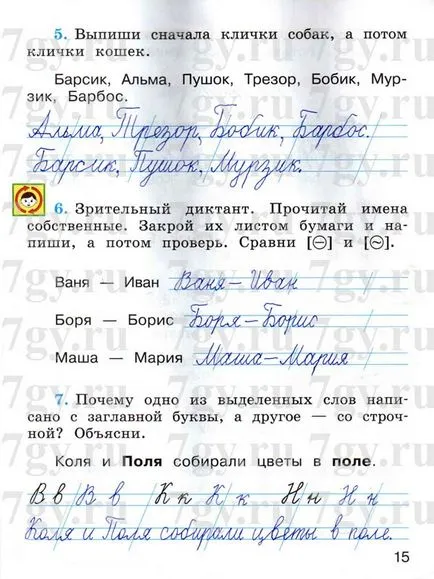 5. Выпиши сначала клички собак, а потом
клички кошек.
Барсик, Альма, Пушок, Трезор, Бобик, Мур-
зик, Барбос.
Альма, Трезор, Бобик, Барбос.
Барсик, Пушок, Мурзик.
6. Зрительный диктант. Прочитай имена
собственные. Закрой их листом бумаги и на-
пиши, а потом проверь. Сравни [㊀] и [~].
Ваня — Иван Ваня – Иван
Боря — Борис Боря – Борис
Маша — Мария Маша – Мария
7. Почему одно из выделенных слов напи-
сано с заглавной буквы, а другое — со строч-
ной? Объясни.
Коля и Поля собирали цветы в поле.
В в В в К к К к Н н Н н
Коля и Поля собирали цветы в поле.
15
7gy.ru